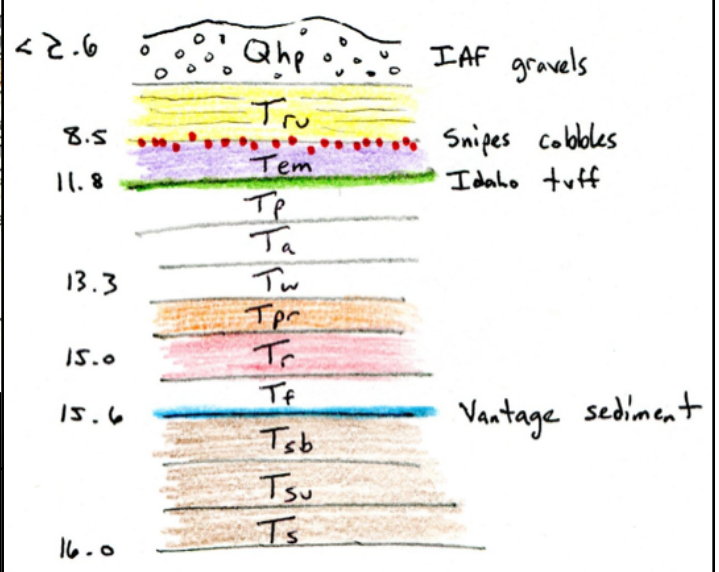 < 2.6 Qhp IAF gravels
Tru
8.5 Snipes cobbles
Tem
11.8 Idaho tuff
Tp
Ta
13.3 Tw
Tpr
15.0 Tr
Tf
15.6 Vantage sediment
Tsb
Tsu
Ts
16.0